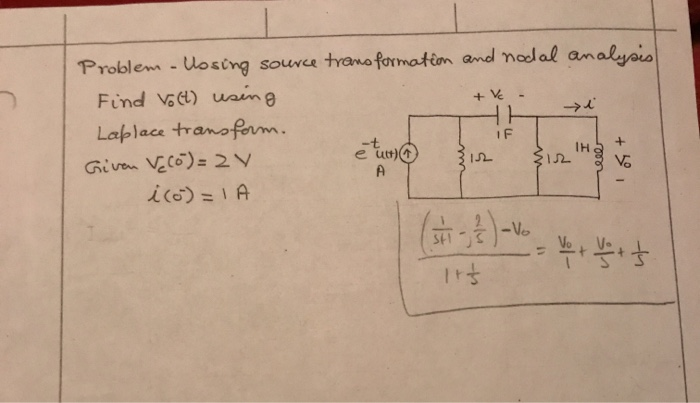 Problem - Uosing source transformation and nodal analysis
Find V₀(t) using
Laplace transform.
Given V_c(0⁻) = 2 V
i(0⁻) = 1 A
+ Vc -
→ i
1F
e^-t u(t)
A
1Ω
1Ω
1H
+
V₀
-
((1/(s+1) - 2/s) - V₀)/(1 + 1/s) = V₀/1 + V₀/s + 1/s